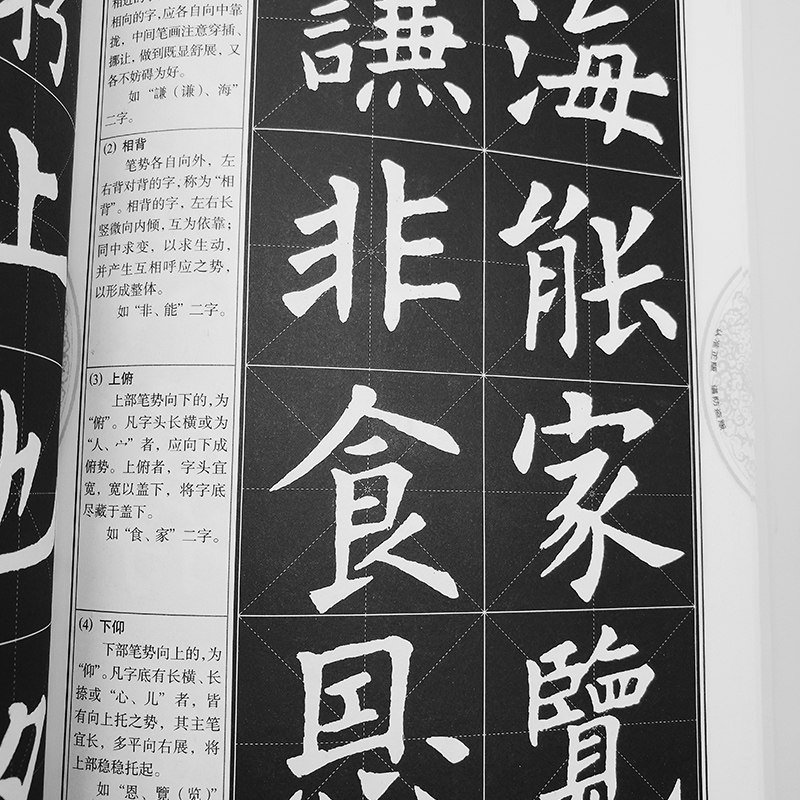 相向的字，应各自向中靠
拢，中间笔画注意穿插、
挪让，做到既显舒展，又
各不妨碍为好。
如“謙（谦）、海”
二字。
(2) 相背
笔势各自向外，左
右背对背的字，称为“相
背”。相背的字，左右长
竖微向内倾，互为依靠；
同中求变，以求生动，
并产生互相呼应之势，
以形成整体。
如“非、能”二字。
(3) 上俯
上部笔势向下的，为
“俯”。凡字头长横或为
“人、宀”者，应向下成
俯势。上俯者，字头宜
宽，宽以盖下，将字底
尽藏于盖下。
如“食、家”二字。
(4) 下仰
下部笔势向上的，为
“仰”。凡字底有长横、长
捺或“心、儿”者，皆
有向上托之势，其主笔
宜长，多平向右展，将
上部稳稳托起。
如“恩、覽（览）”
謙海
非能
食家
恩覽
上
也